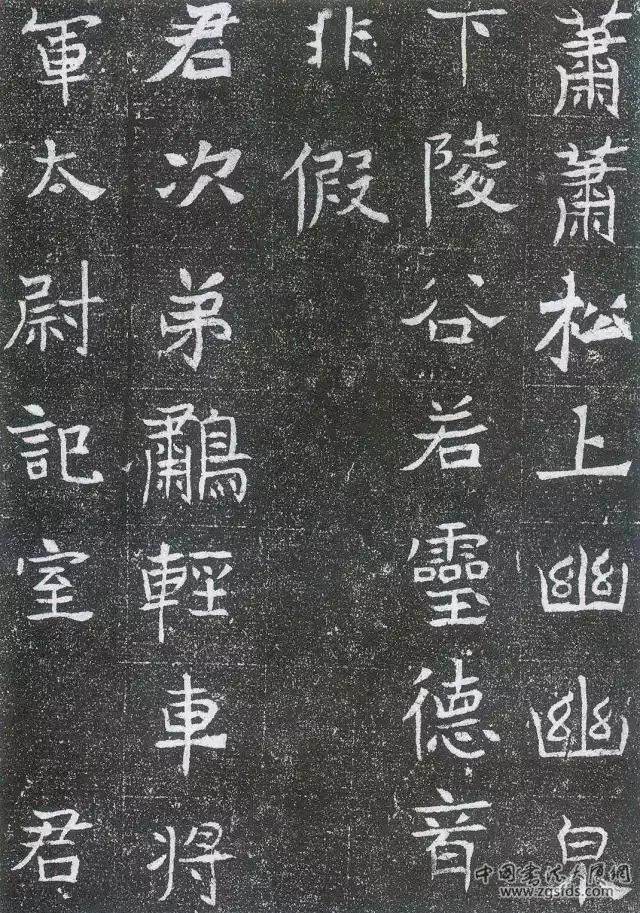 蕭蕭松上幽幽泉
下陵谷若靈德音
非假
君次弟鸘輕車将
軍太尉記室 君
中国书法大展网
www.zgsfds.com